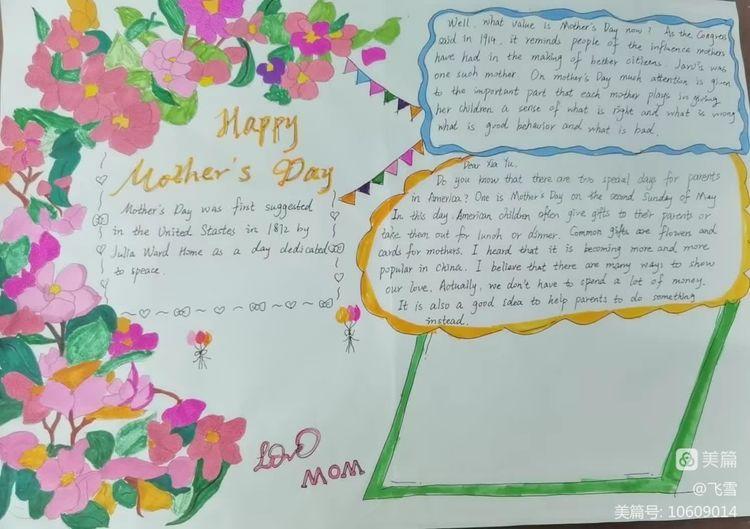 Happy
Mother's Day
Mother's Day was first suggested
in the United Stastes in 1872 by
Julia Ward Home as a day dedicated
to speace.
Well, what value is Mother's Day now? As the Congress
said in 1914, it reminds people of the influence mothers
have had in the making of better citizens. Jarvis was
one such mother. On mother's Day much attention is given
to the important part that each mother plays in giving
her children a sense of what is right and what is wrong
what is good behavior and what is bad.
Dear Xia Yu.
Do you know that there are two special days for parents
in America? One is Mother's Day on the second Sunday of May
In this day. American children often give gifts to their parents or
take them out for lunch or dinner. Common gifts are flowers and
cards for mothers. I heard that it is becoming more and more
popular in China. I believe that there are many ways to show
our love. Actually, we don't have to spend a lot of money.
It is also a good idea to help parents to do something
instead.
Love
MOM
美篇
@飞雪
美篇号: 10609014